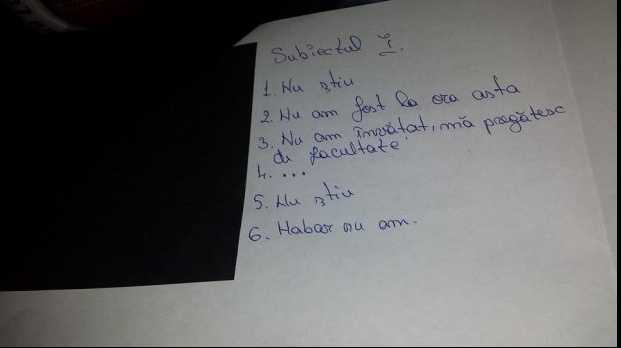 Subiectul I.
1. Nu știu
2. Nu am fost la ora asta
3. Nu am învățat, mă pregătesc
de facultate
4. ...
5. Nu știu
6. Habar nu am.